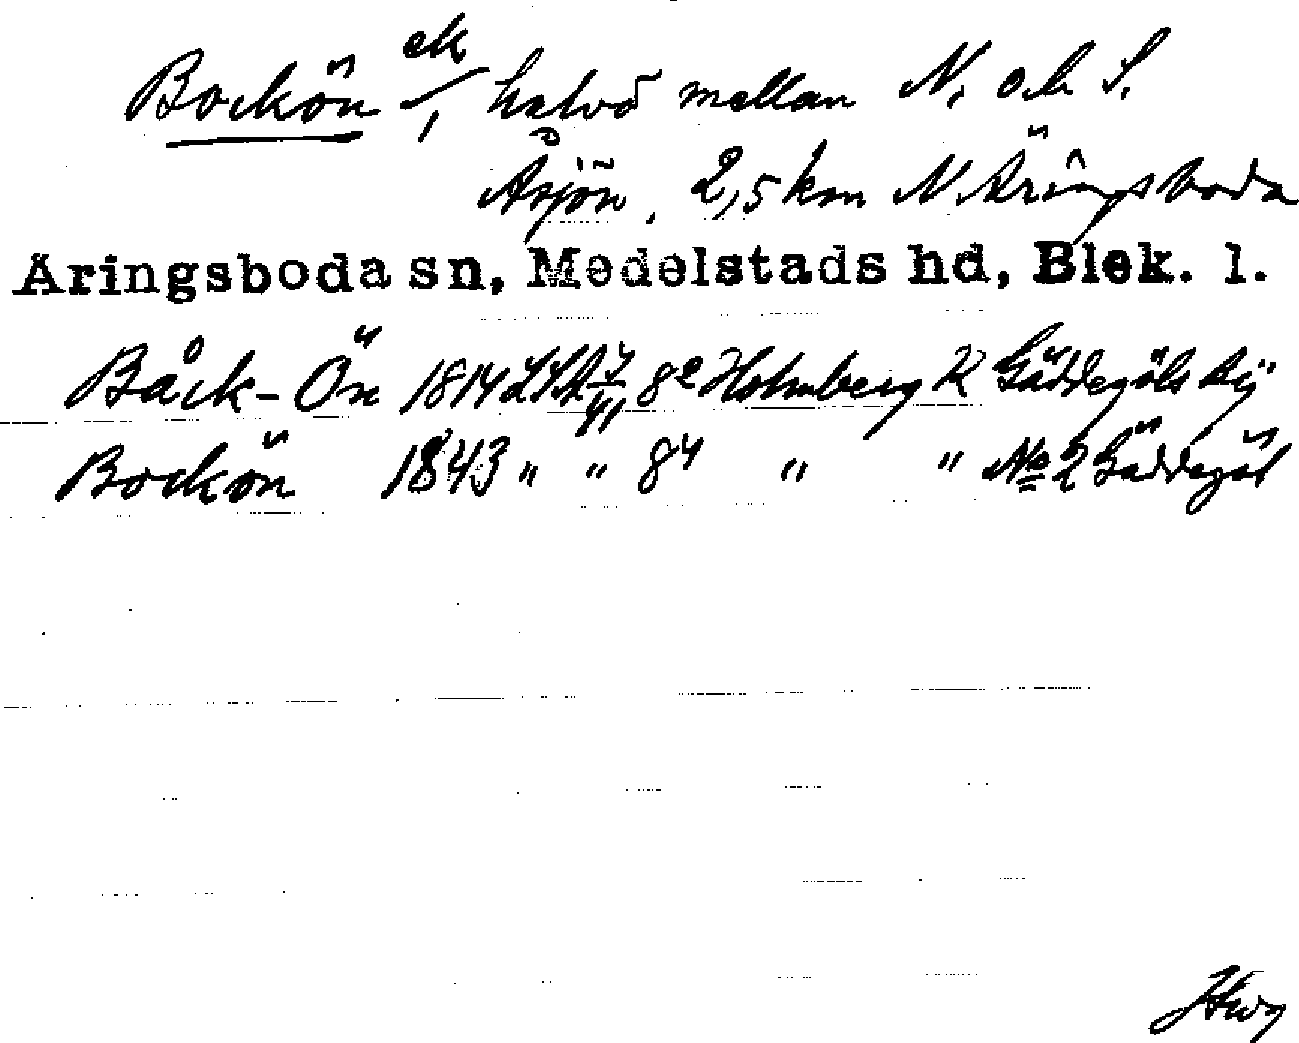 Bockön ek/, halvö mellan N. och S.
Åsjön, 2,5 km N. Äringsboda
Äringsboda sn, Medelstads hd, Blek. l.
Båck-Ön 1814 LSA 82 Holmberg K Gäddegöls Äg
Bockön 1843 " " 84 " " No 2 Gäddegöl